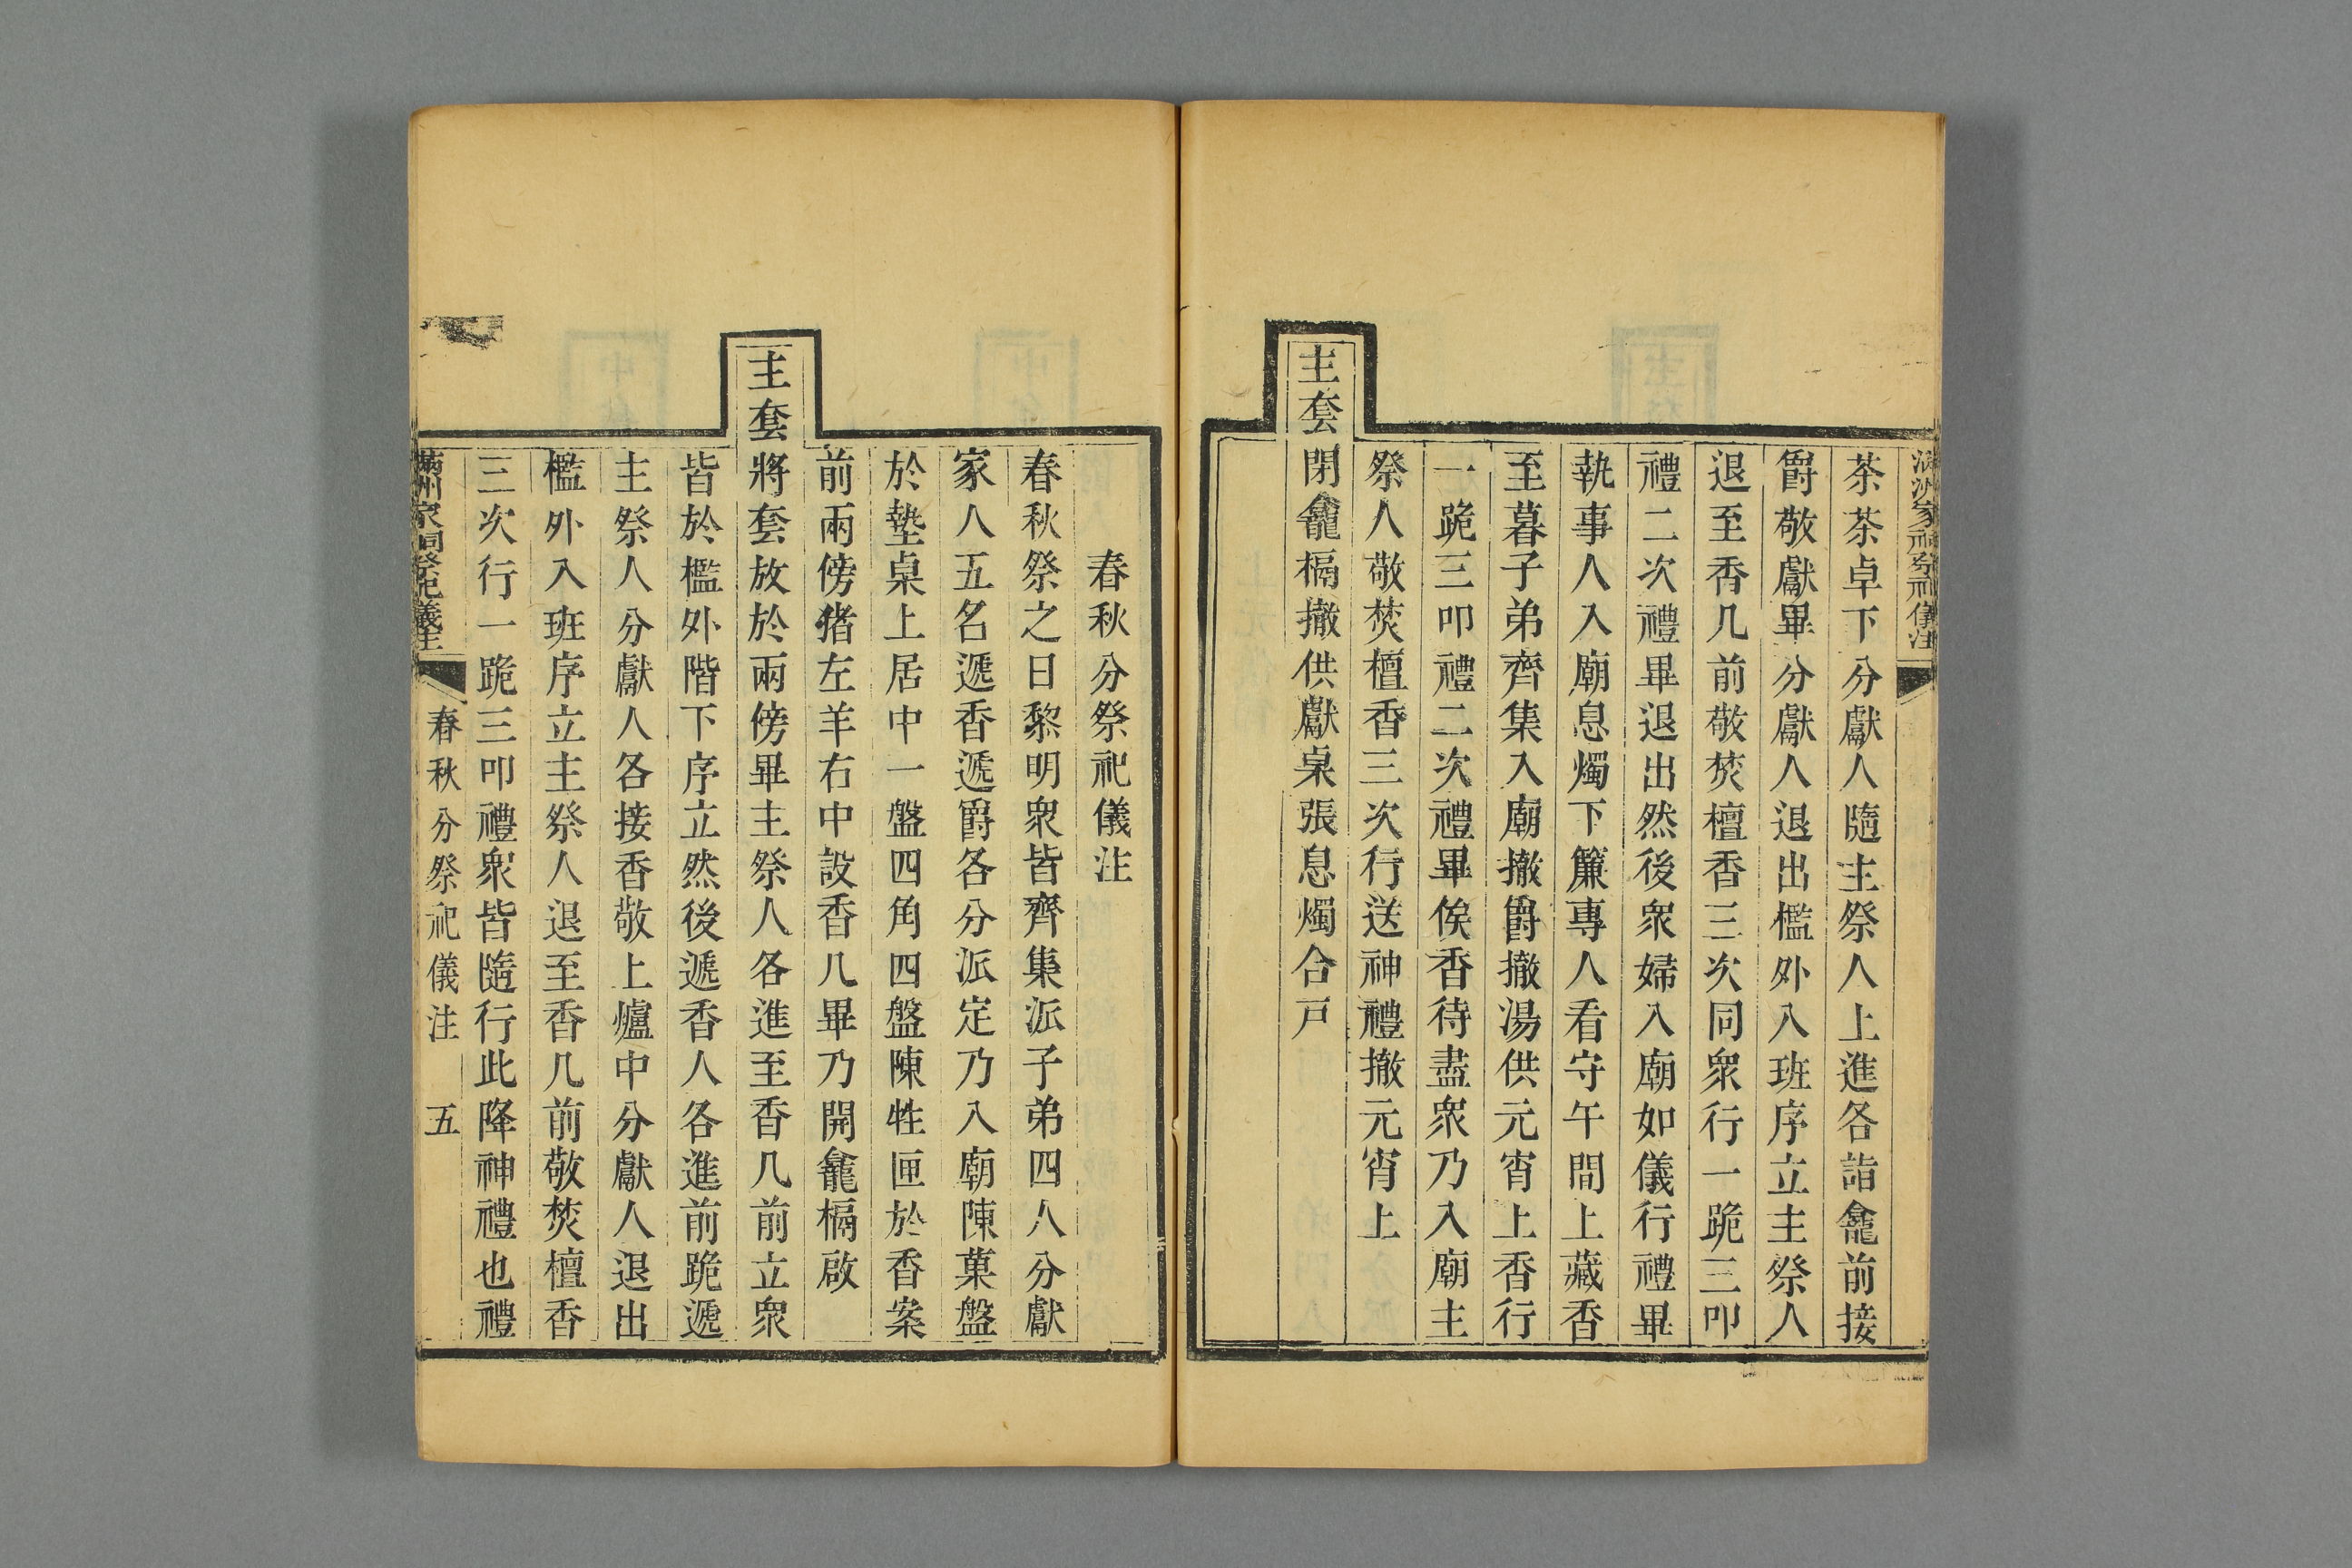 滿洲家祠祭祀儀注
茶茶卓下分獻人隨主祭人上進各詣龕前接
爵敬獻畢分獻人退出檻外入班序立主祭人
退至香几前敬焚檀香三次同衆行一跪三叩
禮二次禮畢退出然後衆婦入廟如儀行禮畢
執事人入廟息燭下簾專人看守午間上藏香
至暮子弟齊集入廟撤爵撤湯供元宵上香行
一跪三叩禮二次禮畢俟香待盡衆乃入廟主
祭人敬焚檀香三次行送神禮撤元宵上
主套閉龕槅撤供獻桌張息燭合戸
春秋分祭祀儀注
春秋祭之日黎明衆皆齊集派子弟四人分獻
家人五名遞香遞爵各分派定乃入廟陳菓盤
於墊桌上居中一盤四角四盤陳牲匣於香案
前兩傍猪左羊右中設香几畢乃開龕槅啟
主套將套放於兩傍畢主祭人各進至香几前立衆
皆於檻外階下序立然後遞香人各進前跪遞
主祭人分獻人各接香敬上爐中分獻人退出
檻外入班序立主祭人退至香几前敬焚檀香
三次行一跪三叩禮衆皆隨行此降神禮也禮
滿洲家祠祭祀儀注 春秋分祭祀儀注 五